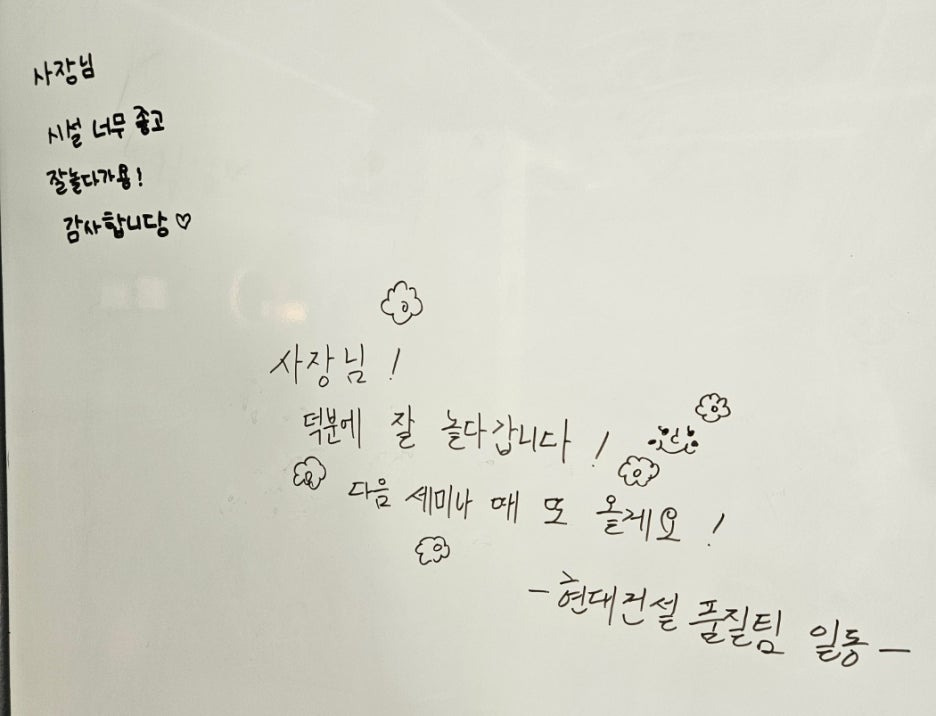 사장님
시설 너무 좋고
잘놀다가용!
감사합니당♡
사장님!
덕분에 잘 놀다갑니다!
다음 세미나 때 또 올게요!
-현대건설 품질팀 일동-